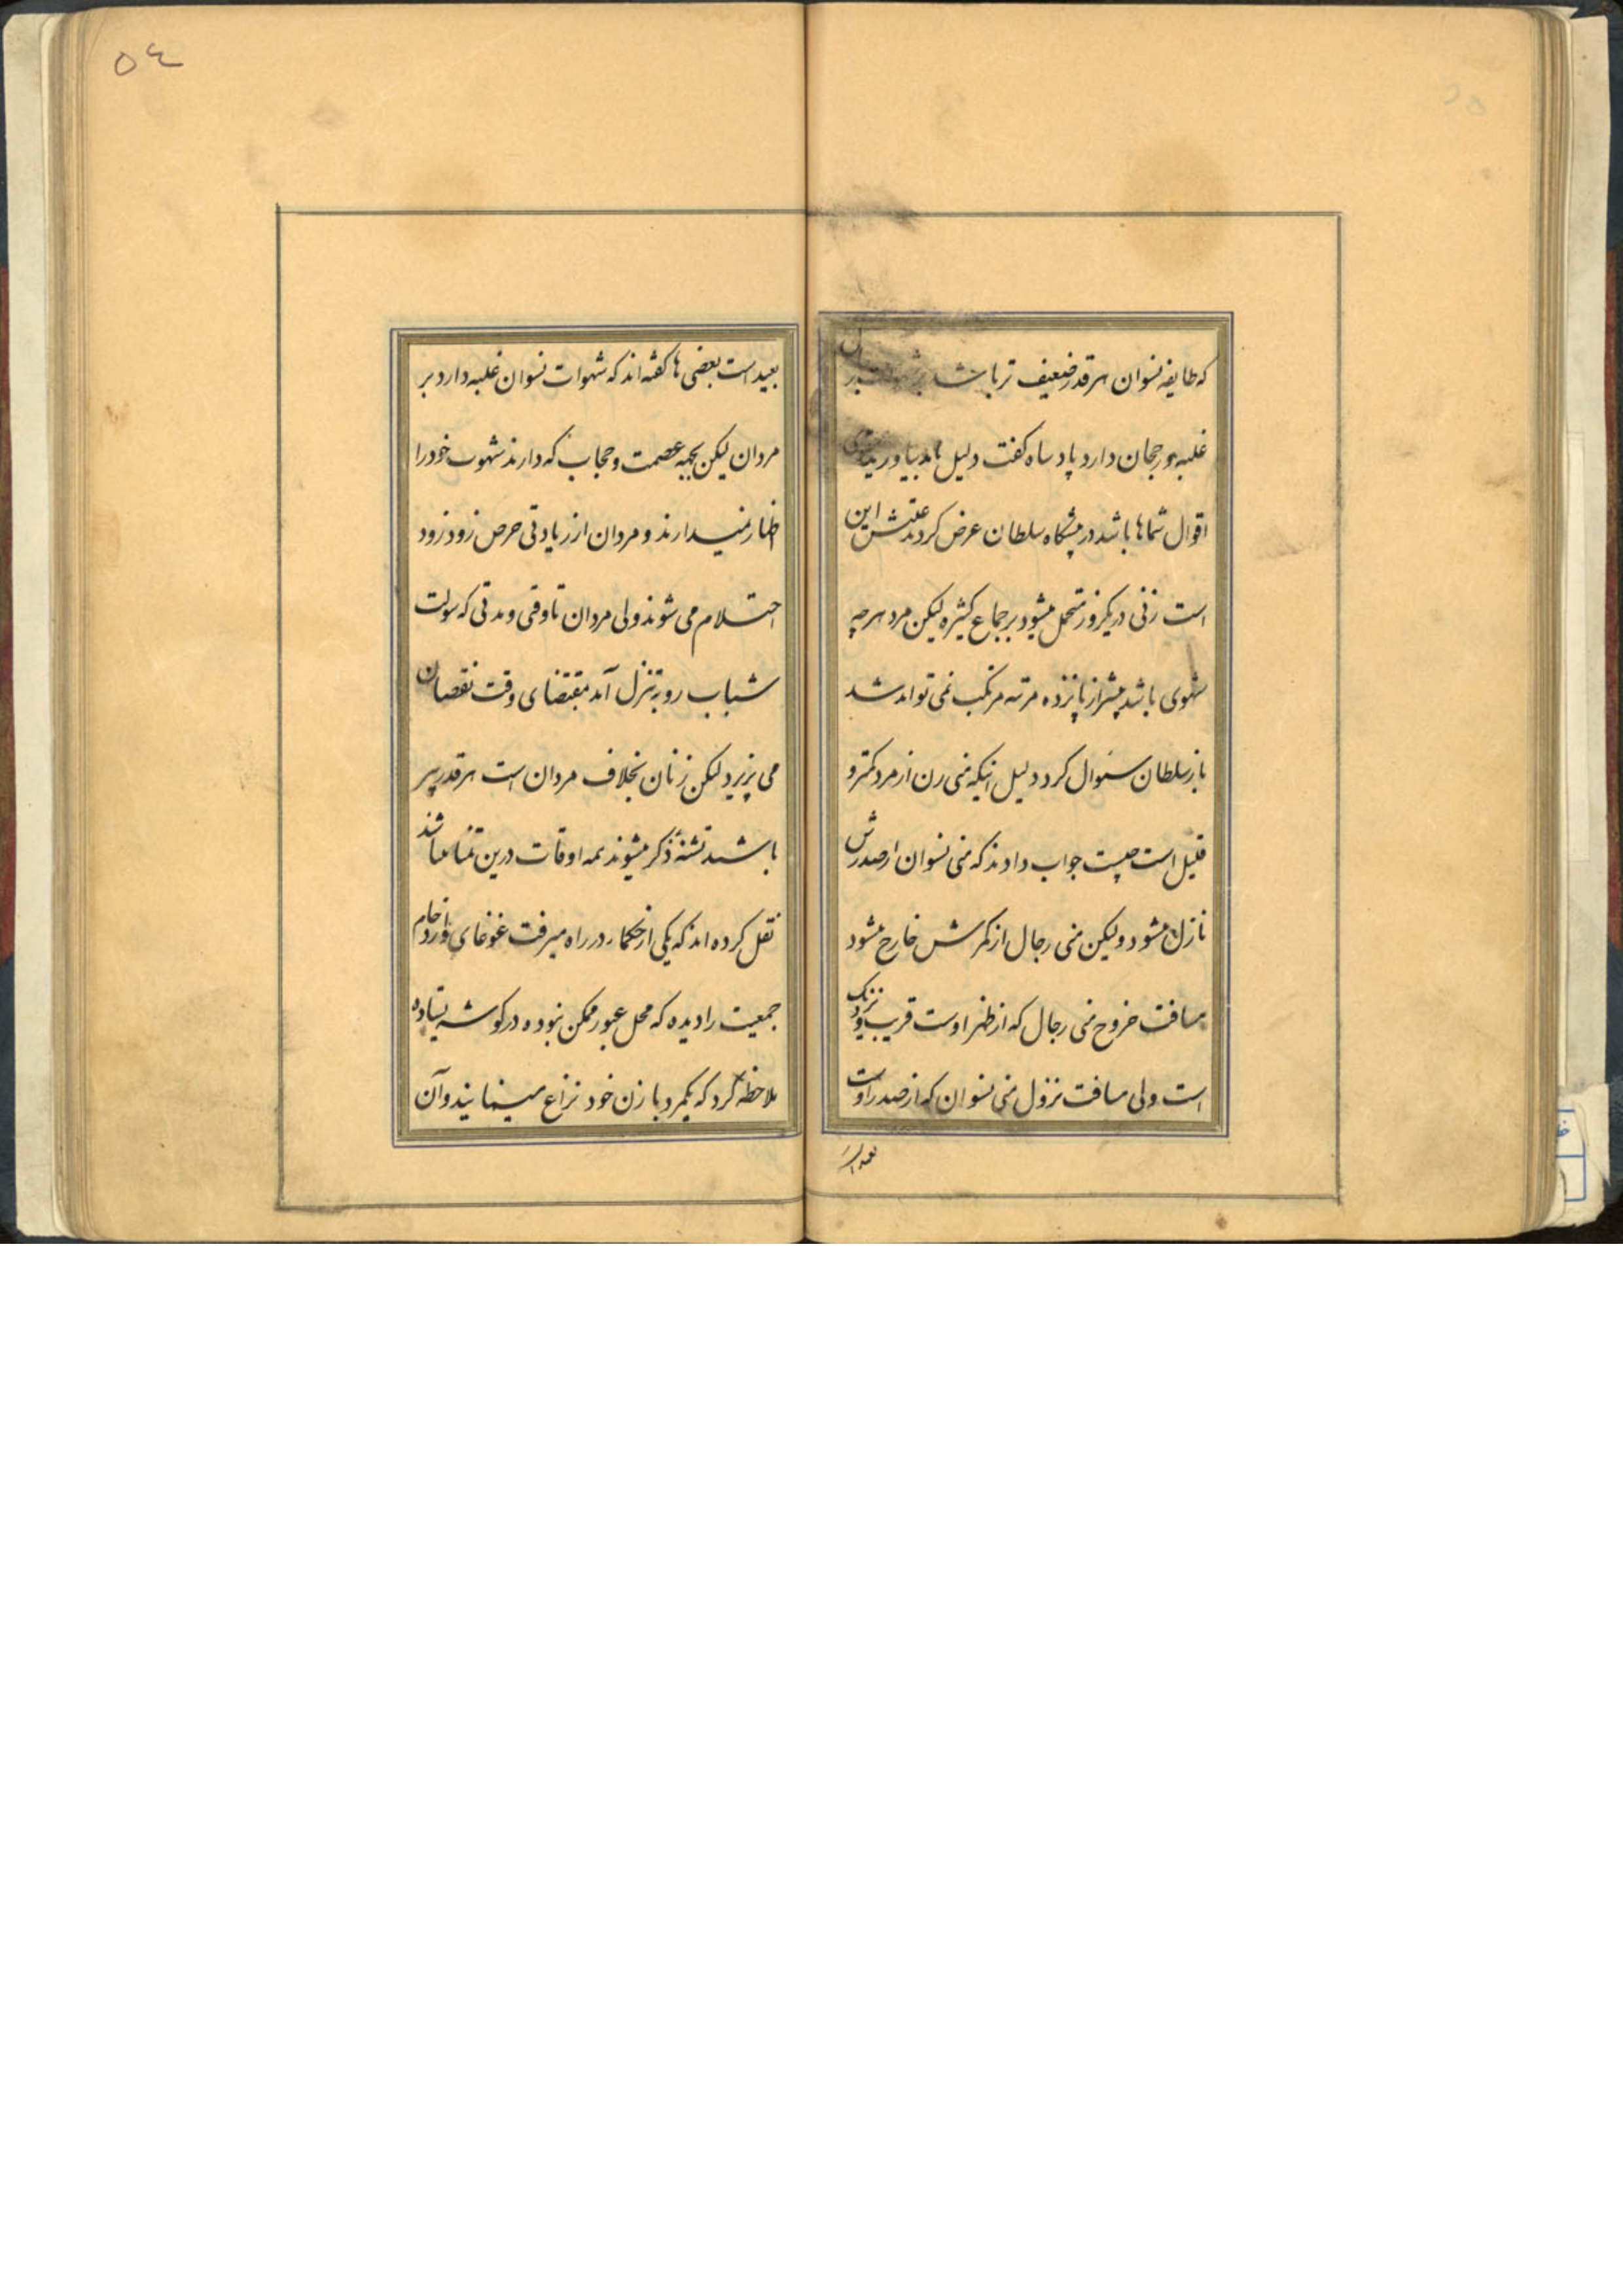 که طایفه نسوان هر قدر ضعیف تر باشد
غلبه و رجحان دارد پادشاه گفت دلیل باید بیاورید
اقوال شماها باشد در پیشگاه سلطان عرض کردند علتش این
است زنی در یکروز متحمل میشود بر جماع کثیره لیکن مرد هر چه
شهوی باشد بیشتر از پانزده مرتبه مرتکب نمی تواند شد
باز سلطان سئوال کرد دلیل اینکه منی زن از مرد کمتر و
قلیل است چیست جواب دادند که منی نسوان از صدرش
نازل میشود ولیکن منی رجال از کمرش خارج میشود
مسافت خروج منی رجال که از ظهر اوست قریب و نزدیک
است ولی مسافت نزول منی نسوان که از صدر اوست
بعید است
۵٤
بعید است بعضی ها گفته اند که شهوات نسوان غلبه دارد بر
مردان لیکن بجهه عصمت و حجاب که دارند شهوت خود را
اظهار نمیدارند و مردان از زیادتی حرص زود زود
احتلام می شوند ولی مردان تا وقتی و مدتی که سولت
شباب رو بتنزل آمد بمقتضای وقت نقصان
می پزیرد لیکن زنان بخلاف مردان است هر قدر پیر
باشند تشنۀ ذکر میشوند همه اوقات درین تمنا میباشند
نقل کرده اند که یکی از حکماء در راه میرفت غوغای و ازدحام
جمعیت را دیده که محل عبور ممکن نبوده در گوشه یستاده
ملاحظه کرد که یکمرد با زن خود نزاع مینمایند و آن